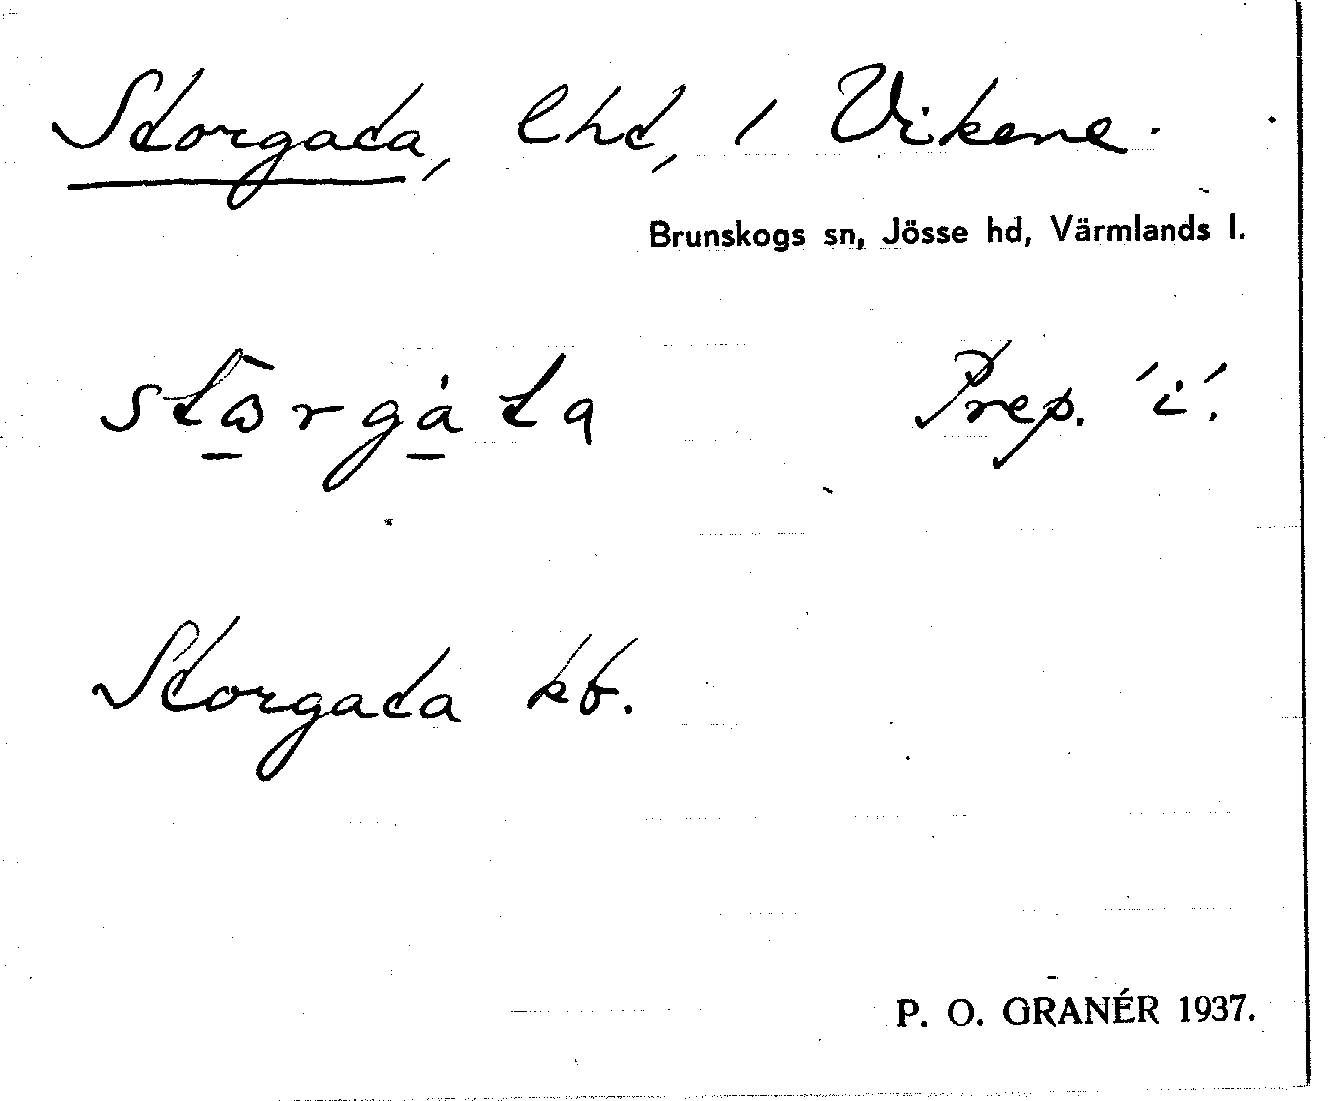 Storgata, lht, / Vikene.
Brunskogs sn, Jösse hd, Värmlands l.
Prep. 'i'.
Storgata kb.
P. O. GRANÉR 1937.